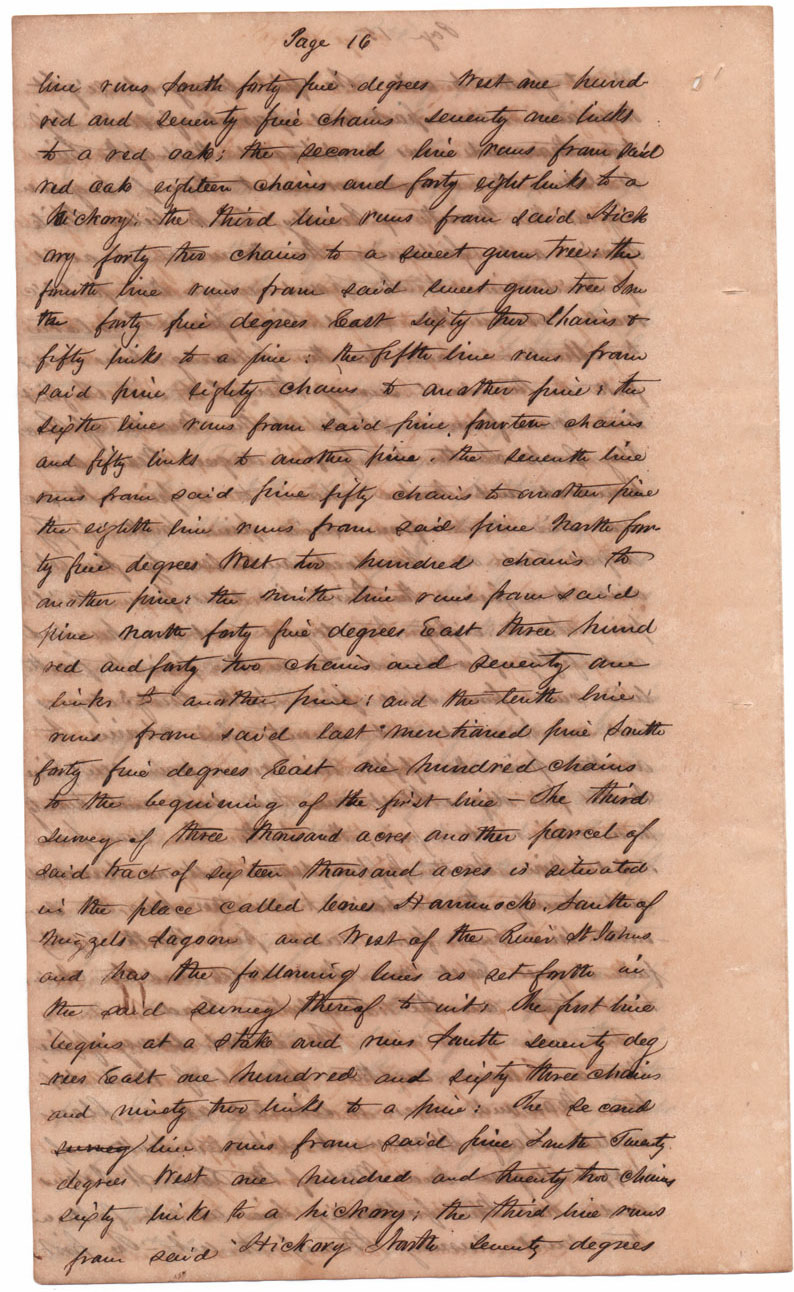 Page 16
line runs South forty five degrees West one hund
red and seventy five chains seventy one links
to a red oak; the second line runs from said
red oak eighteen chains and forty eight links to a
hickory: the third line runs from said Hick
ory forty two chains to a sweet gum tree: the
fourth line runs from said sweet gum tree Sou
th forty five degrees East sixty two Chains &
fifty links to a pine: the fifth line runs from
said pine eighty chains to another pine; the
sixth line runs from said pine fourteen chains
and fifty links to another pine. the seventh line
runs from said pine fifty chains to another pine
the eighth line runs from said pine North for
ty five degrees West two hundred chains to
another pine: the ninth line runs from said
pine North forty five degrees East three hund
red and forty two chains and seventy one
links to another pine; and the tenth line
runs from said last mentioned pine South
forty five degrees East one hundred chains
to the beginning of the first line - The third
survey of three thousand acres another parcel of
said tract of sixteen thousand acres is situated
in the place called Hammock, South of
Lagoon and West of the River St Johns
and has the following lines as set forth in
the said survey thereof to wit; the first line
begins at a stake and runs South seventy deg
rees East one hundred and sixty three chains
and ninety two links to a pine: The second
survey line runs from said pine South Twenty
degrees West one hundred and twenty two chains
sixty links to a hickory; the third line runs
from said Hickory North seventy degrees